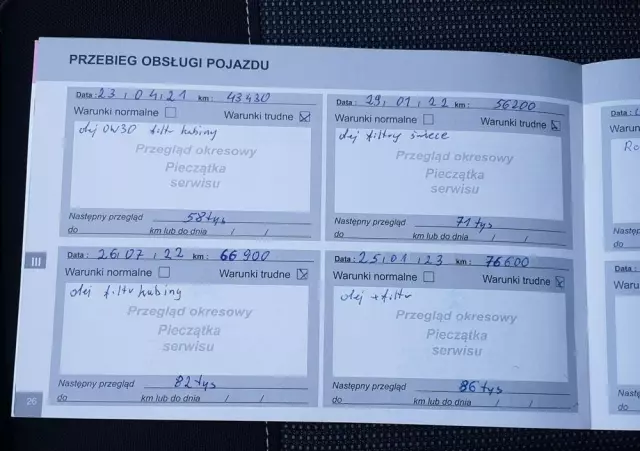 PRZEBIEG OBSŁUGI POJAZDU
Data: 23 / 04 / 21 km: 43430
Warunki normalne Warunki trudne
olej 0W30 filtr kabiny
Przegląd okresowy
Pieczątka
serwisu
Następny przegląd 58 tys
do km lub do dnia / /
Data: 29 / 01 / 22 km: 56200
Warunki normalne Warunki trudne
olej filtry świece
Przegląd okresowy
Pieczątka
serwisu
Następny przegląd 71 tys
do km lub do dnia / /
III
Data: 26 / 07 / 22 km: 66 900
Warunki normalne Warunki trudne
olej filtr kabiny
Przegląd okresowy
Pieczątka
serwisu
Następny przegląd 82 tys
do km lub do dnia / /
Data: 25 / 01 / 23 km: 76600
Warunki normalne Warunki trudne
olej + filtr
Przegląd okresowy
Pieczątka
serwisu
Następny przegląd 86 tys
do km lub do dnia / /
26